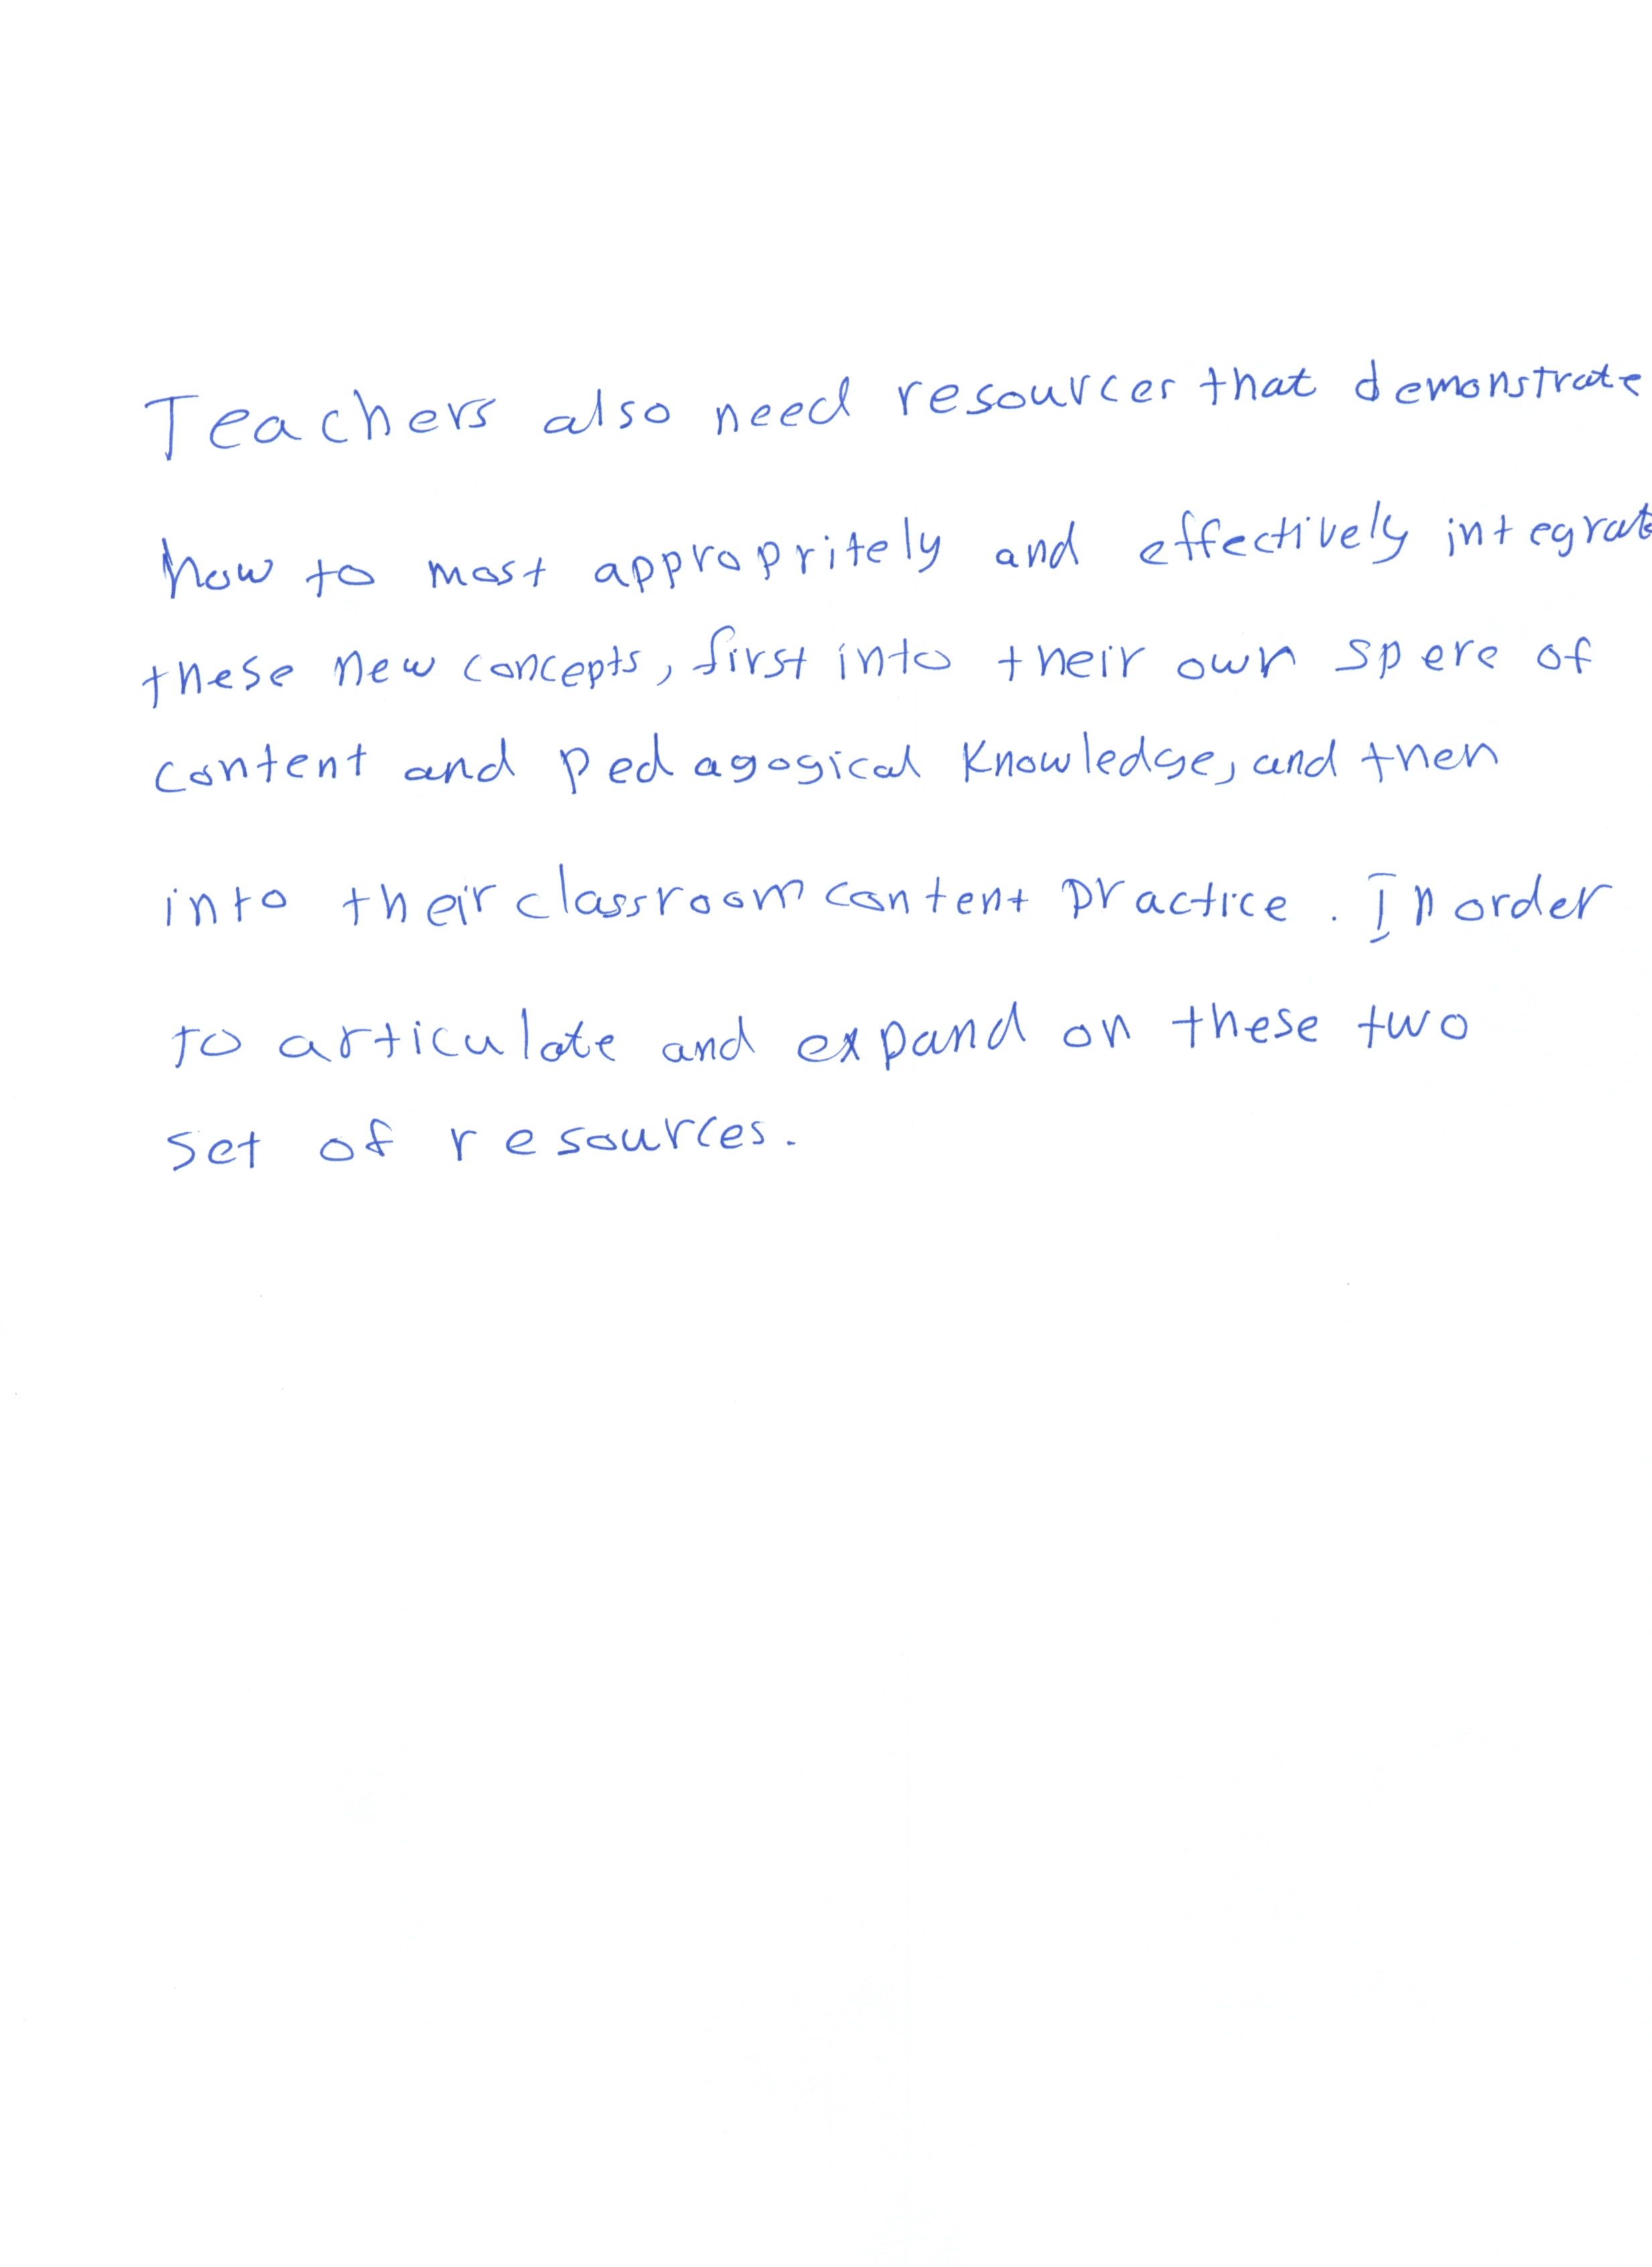 Teachers also need resources that demonstrate
how to most appropritely and effectively integrat
these new concepts, first into their own spere of
content and pedagogical knowledge, and then
into their classroom content practice. In order
to articulate and expand on these two
set of resources.